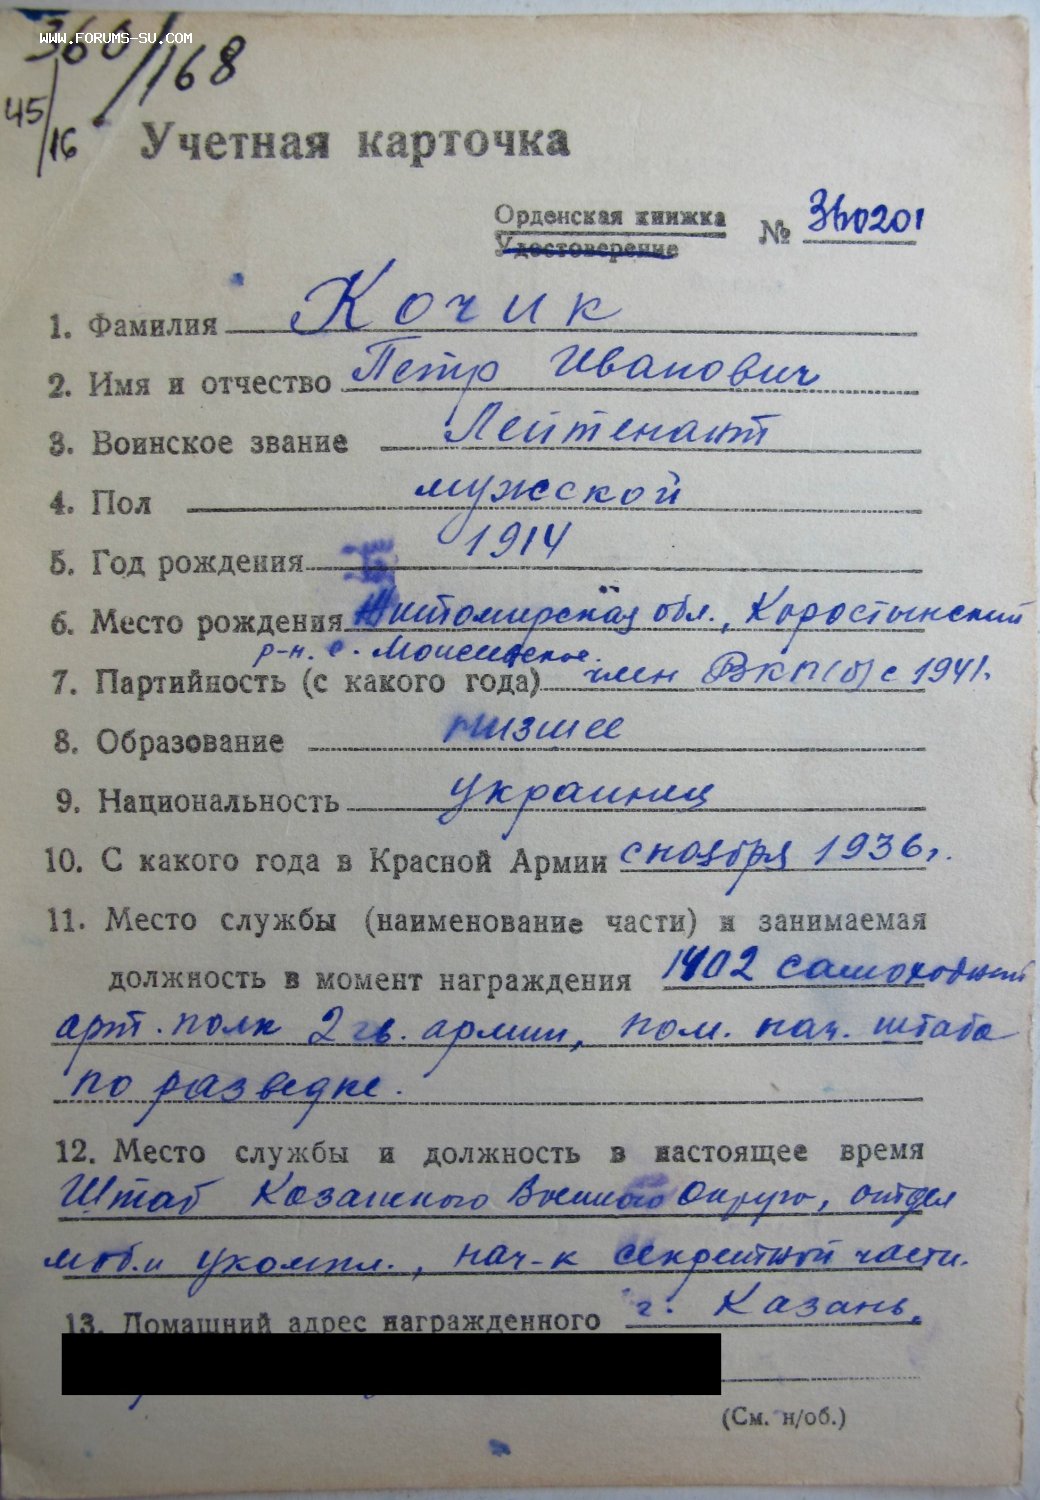 WWW.FORUMS-SU.COM
360/168
45/16
Учетная карточка
Орденская книжка
Удостоверение
№ 360201
1. Фамилия Кочик
2. Имя и отчество Петр Иванович
3. Воинское звание Лейтенант
4. Пол мужской
5. Год рождения 1914
6. Место рождения Житомирская обл., Коростынский
р-н. с.
7. Партийность (с какого года) член ВКП(б) с 1941.
8. Образование низшее
9. Национальность украинец
10. С какого года в Красной Армии с ноября 1936г.
11. Место службы (наименование части) и занимаемая
должность в момент награждения 1402 самоходный
арт. полк 2 гв. армии, пом. нач. штаба
по разведке.
12. Место службы и должность в настоящее время
Штаб Казанского Военного Округа, отдел
моб. и укомпл., нач-к секретной части.
13. Домашний адрес награжденного г. Казань,
(См. н/об.)